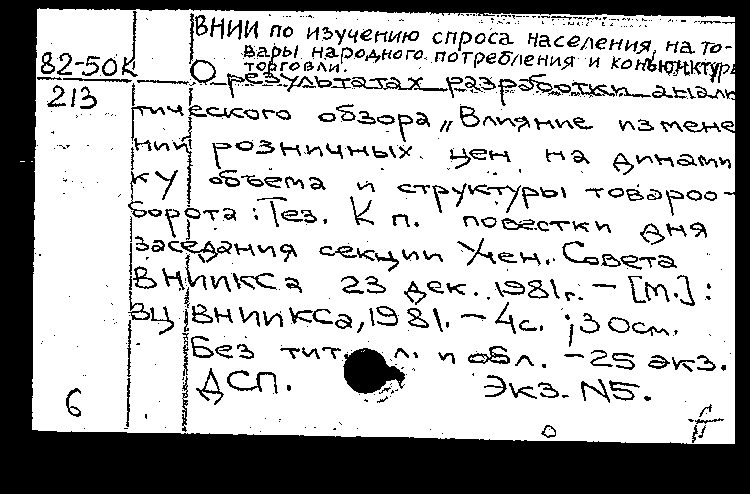 ВНИИ по изучению спроса населения на то-
вары народного потребления и конъюнктуры
торговли.
82-50К
213
О результатах разработки анали
тического обзора „Влияние измене
ний розничных цен на динами
ку объема и структуры товароо-
борота: Тез. К п. повестки дня
заседания секции Учен. Совета
ВНИИКСа 23 дек. 1981г. – [М.] :
ВЦ ВНИИКСа, 1981. – 4с. ; 30см.
Без тит. л. и обл. – 25 экз.
ДСП. Экз. N5.
6